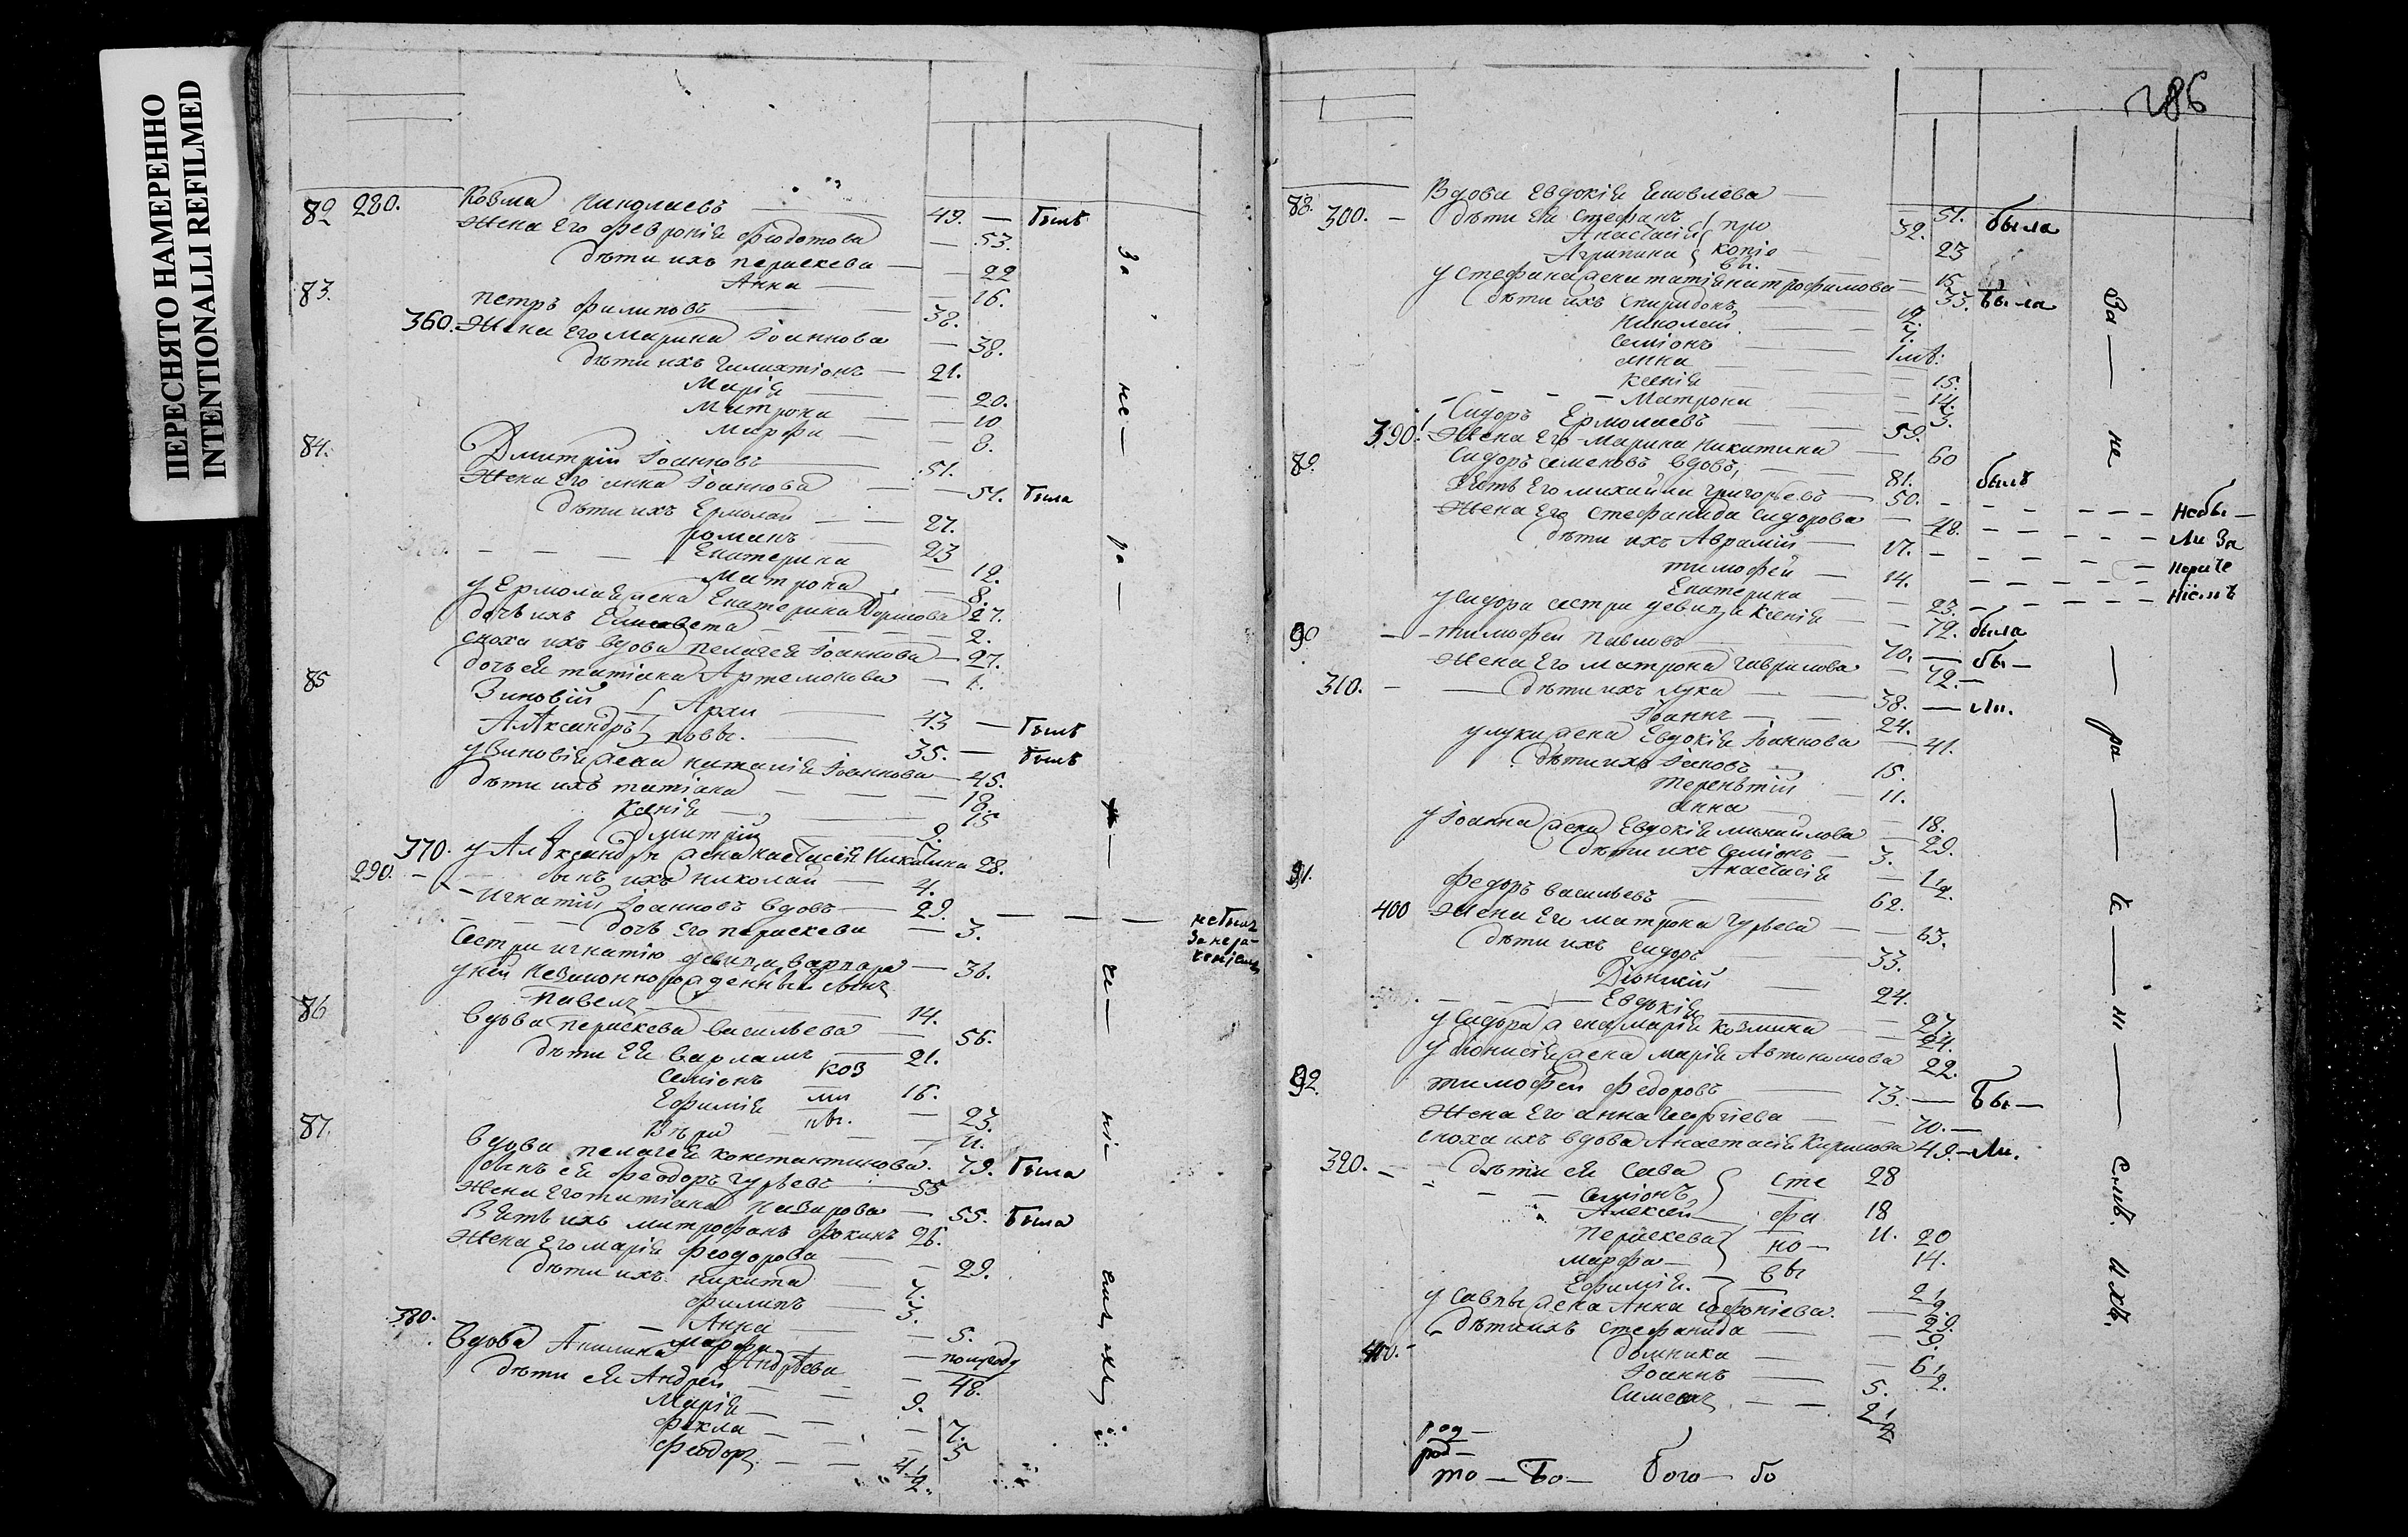 ПЕРЕСНЯТО НАМЕРЕННО
INTENTIONALLI REFILMED
82 280. Козма Николаевъ 49. — былъ
Жена Его Феврониѣ Федотова — 53.
дѣти ихъ параскева — 22
Анна — 16.
83. петръ Филиповъ 38.
360. Жена Его Марина Іоаннова — 38.
дѣти ихъ Галахтіонъ — 21.
Маріѣ — 20.
Матрона — 10
Марфа — 8.
84. Дмитрій Іоанновъ 51.
Жена Его анна Іоаннова — 51. была
дѣти ихъ Ермолай — 27.
романъ — 23
Екатерина — 12.
Матрона — 8.
у Ермолаѣ жена Екатерина 27.
дочь ихъ Елисавета — 2.
сноха ихъ вдова пелагеѣ Іоаннова — 27.
дочь еѣ татіана Артемонова — 1.
85 Зиновій Архи 43 — былъ
Александръ повы. 35. — былъ
у Зиновіѣ жена наталіѣ Іоаннова — 45.
дѣти ихъ татіана — 18.
Ксеніѣ — 15
Дмитрій 9.
370. у Александра жена настасіѣ Никитина 28.
290. — сынъ ихъ николай — 4.
Игнатій Іоанновъ вдовъ 29. — — — небылъ
дочь Его параскева — 3. за нера-
Сестра игнатію девица варвара — 36. ченіемъ
у ней незаконнорожденный сынъ
павелъ 14.
86 вдова параскева васильева 56.
дѣти Еѣ варламъ Коз 21.
Семіонъ ми 16.
Ефиміѣ ны. — 23.
Вѣра — 11.
87. вдова пелагеѣ константинова. 79. была
сынъ еѣ феодоръ гурьевъ 55
Жена Его татіана Назарова — 55. была
Зять ихъ митрофанъ фокинъ 26.
Жена Его маріѣ феодорова — 29.
дѣти ихъ никита 7.
филипъ 3.
380. Анна — 5.
Марфа — полугоду
Вдова Акилина Андрѣева — 48.
дѣти еѣ Андрей 9.
Маріѣ — 7.
фекла — 5
феодоръ 4 1/2.
За — не — ра — че — ні — емъ ихъ
286
88. Вдова Евдокіѣ Еиковлева 51. была
300. — дѣти Еѣ Стефанъ про 32.
Анастасіѣ копіе 23
Агрипина вы. 15
у Стефана жена татіѣна трофимова — 33. была
дѣти ихъ спиридонъ 12.
Николай 7.
Семіонъ 1 лѣ:
анна — 15.
Ксеніѣ — 14.
Матрона — 3.
Сидоръ Ермолаевъ 59.
390. Жена Его Марина никитина — 60
89. Сидоръ семеновъ вдовъ, 81. былъ
Зять Его михаила григорьевъ 50. — небы —
Жена Его стефанида сидорова — 48. — ли за
дѣти ихъ Аврамій 17. — нераче
тимофей — 14. — ніемъ
Екатерина — 23.
у сидора сестра девица Ксеніѣ — 72. была
90 тимофей павловъ 70. — бы —
Жена Его матрона гаврилова — 72. —
310. — дѣти ихъ лука 38. — ли.
Іоаннъ 24.
у луки жена Евдокіѣ Іоаннова — 41.
дѣти ихъ Іаковъ — 15.
терентій 11.
анна — 18.
у Іоанна жена Евдокіѣ михайлова — 29.
дѣти ихъ семіонъ — 3.
Анастасіѣ — 1 1/2.
91. федоръ васильевъ 62.
400 Жена Его матрона гурьева — 63.
дѣти ихъ сидоръ 33.
Діонисій 24.
Евдокіѣ — 27
у сидора жена маріѣ козмина — 24.
у діонисіѣ жена маріѣ Автономова 22.
92. тимофей федоровъ 73. — бы —
Жена Его анна георгіева — 70. —
сноха ихъ вдова Анастасіѣ Кирилова 49. — ли.
320. — дѣти еѣ Сава Сте 28
Семіонъ фа 18
Алексей но — 11.
параскева вы 20
марфа — 14.
Ефиміѣ. — 2 1/2.
у саввы жена Анна софоніева. — 29.
дѣти ихъ стефанида — 9.
410. домника — 6 1/2.
Іоаннъ 5.
Симеонъ 2 1/2
За — не — ра — че — ні — емъ ихъ.
род —
род —
то — бо — бого — бо